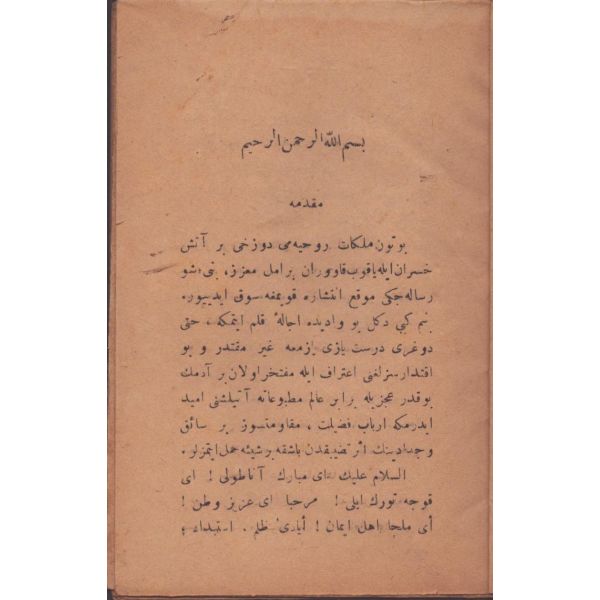 بسم الله الرحمن الرحيم
مقدمه
بوتون ملكات روحیه‌می دوزخی بر آتش
خسران ایله یاقوب قاووران بر امل معزز، بنی شو
رساله‌جكی موقع انتشاره قویمغه سوق ایدییور.
بنم كبی دكل بو وادیده اجالهٔ قلم ایتمكه، حتی
دوغری درست یازی یازمغه غیر مقتدر و بو
اقتدارسزلغنی اعتراف ایله مفتخر اولان بر آدمك
بوقدر عجزیله برابر عالم مطبوعاته آتیلشنی امید
ایدرمكه ارباب فضیلت، مقاومتسوز بر سائق
وجدانینك اثر تضییقندن باشقه بر شیئه حمل ایتمزلر.
السلام علیك ای مبارك آناطولی! ای
قوجه تورك ایلی! مرحبا ای عزیز وطن!
أی ملجأ اهل ایمان! أیادیٔ ظلم. استبداد؛